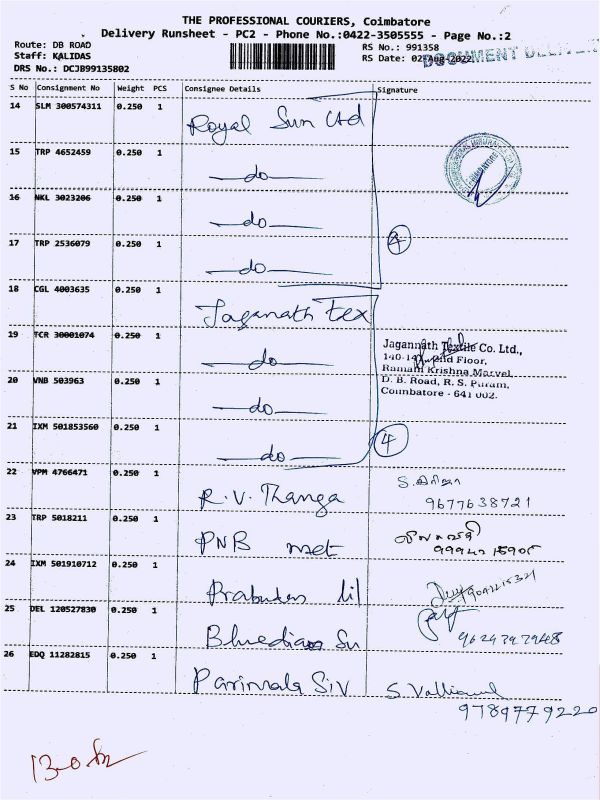 THE PROFESSIONAL COURIERS, Coimbatore
Delivery Runsheet - PC2 - Phone No.:0422-3505555 - Page No.:2
Route: DB ROAD
RS No.: 991358
Staff: KALIDAS
RS Date: 02-Aug-2022
DOCUMENT
DRS No.: DCJB99135802
S No Consignment No Weight PCS Consignee Details Signature
14 SLM 300574311 0.250 1 Royal Sun Ltd
15 TRP 4652459 0.250 1 do
16 NKL 3023206 0.250 1 do
17 TRP 2536079 0.250 1 do
18 CGL 4003635 0.250 1 Jaganath Tex
19 TCR 30001074 0.250 1 do
Jagannath Textile Co. Ltd.,
Floor,
Ramani Krishna Marvel,
20 VNB 503963 0.250 1 do
D. B. Road, R. S. Puram,
Coimbatore - 641 002.
21 IXM 501853560 0.250 1 do 4
22 VPM 4766471 0.250 1 R.V. Thanga
9677638721
23 TRP 5018211 0.250 1 PNB met
24 IXM 501910712 0.250 1
25 DEL 120527830 0.250 1
26 EDQ 11282815 0.250 1 Parimala Siv
9789779220